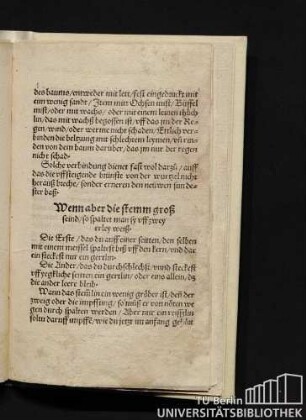 des baums / entweder mit lett / fest eingedruckt mit
ein wenig sandt / Item mit Ochsen mist / Büffel
mist / oder mit wachs / oder mit einem leinen
das mit wachß begossen ist / uff das jm der Re-
gen / wind / oder werme nicht schaden / Etlich ver-
binden die beltzung mit schlechtem leymen /
von dem baum darüber / das jm nur der regen
nicht schad.
Solche verbindung dienet fast wol darzů / auff
das die uffsteigende brünste von der wurtzel nicht
herauß brechs / sonder erneren den newen
ster baß.
Wenn aber die stemm groß
seind / so spaltet man sy uff zwey
erley weiß
Die Erste / das du auff einer seitten / den selben
mit einem meissel spaltest biß uff den kern / und dar
ein steckest nur ein gertlin.
Die Ander / das du durchschlechst / und steckest
uff yegkliche seitten ein gertlin / oder eins allein /
die ander leere bleib.
Wann das stemlin ein wenig gröber ist / den der
zweig oder die impffung / so můß er von nöten
gen durch spalten werden / Aber mit ein
solm darauff impffe / wie du jetz im anfang gehört
TU Berlin
UNIVERSITÄTSBIBLIOTHEK